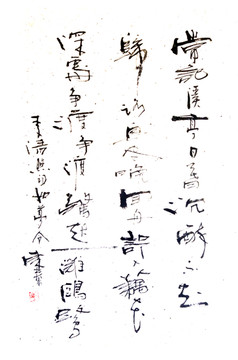 常記溪亭日暮沉醉不知
歸路興盡晚回舟誤入藕花
深處争渡争渡驚起一灘鷗鷺
李清照詞如夢令